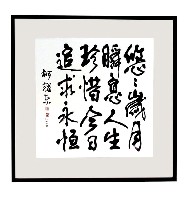 悠悠岁月
瞬息人生
珍惜今日
追求永恒